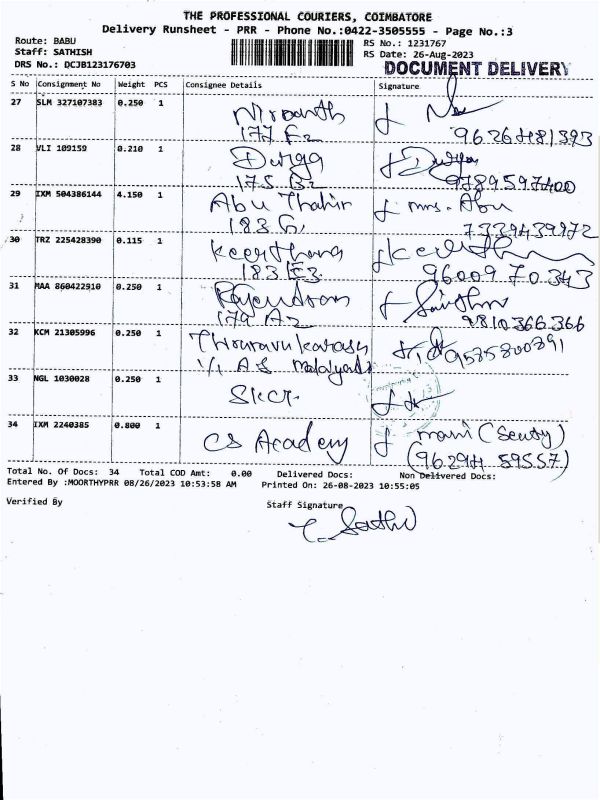 THE PROFESSIONAL COURIERS, COIMBATORE
Delivery Runsheet - PRR - Phone No.:0422-3505555 - Page No.:3
Route: BABU
RS No.: 1231767
Staff: SATHISH
RS Date: 26-Aug-2023
DRS No.: DCJB123176703
DOCUMENT DELIVERY
S No Consignment No Weight PCS Consignee Details Signature
27 SLM 327107383 0.250 1 Niranth
177 F2
28 VLI 109159 0.210 1 Durga Durga
175 G2 9789597400
29 IXM 504386144 4.150 1 Abu Thahir mrs. Abu
183 G1 7339439972
30 TRZ 225428390 0.115 1 Keerthana Keerthana
183 E3 96009 70343
31 MAA 860422910 0.250 1 Rajendran
179 A2 9810366366
32 KCM 21305996 0.250 1 Thirunavukarasu
1/1 A.S 9585800891
33 NGL 1030028 0.250 1 SKCT
34 IXM 2240385 0.800 1 CS Academy mani (Seuty)
(96294 59557)
Total No. Of Docs: 34 Total COD Amt: 0.00 Delivered Docs: Non Delivered Docs:
Entered By :MOORTHYPRR 08/26/2023 10:53:58 AM Printed On: 26-08-2023 10:55:05
Verified By Staff Signature